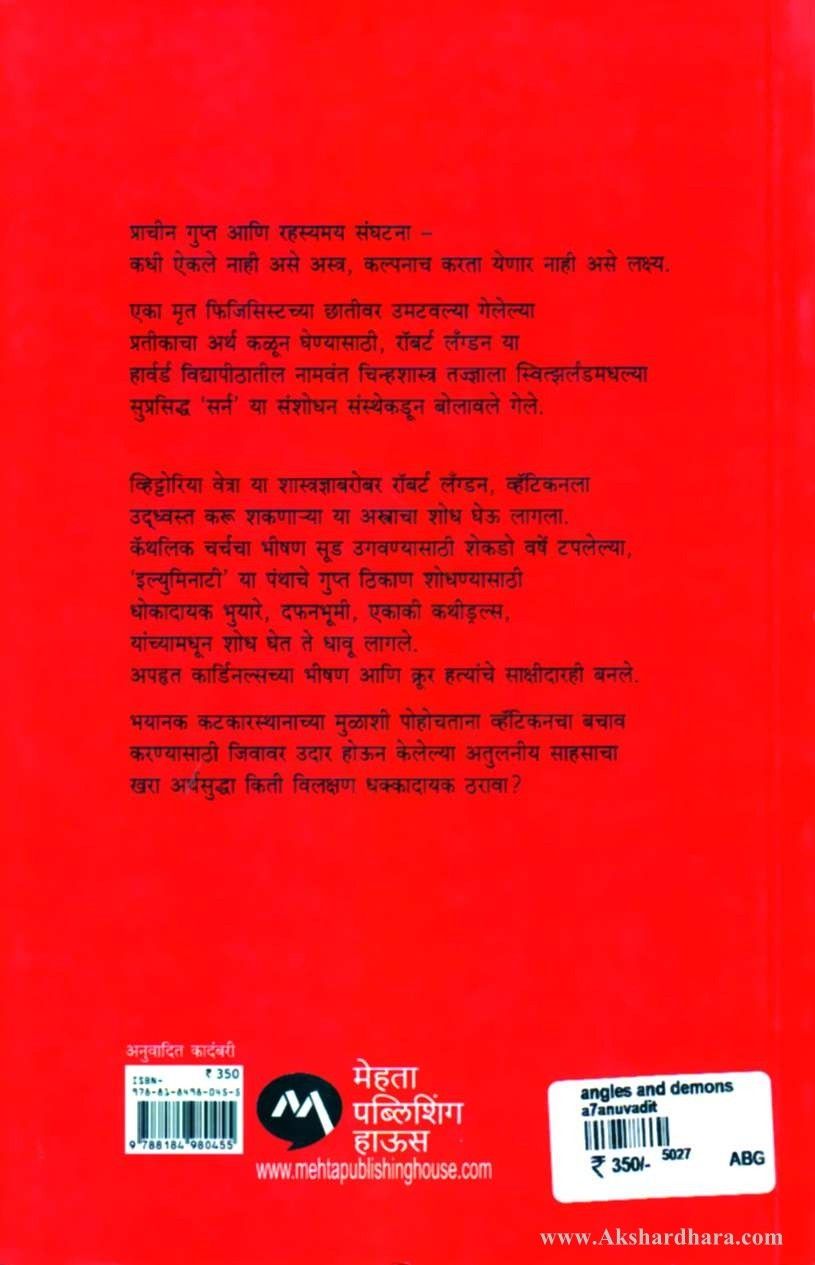 प्राचीन गुप्त आणि रहस्यमय संघटना –
कधी ऐकले नाही असे अस्त्र, कल्पनाच करता येणार नाही असे लक्ष्य.
एका मृत फिजिसिस्टच्या छातीवर उमटवल्या गेलेल्या
प्रतीकाचा अर्थ कळून घेण्यासाठी, रॉबर्ट लँग्डन या
हार्वर्ड विद्यापीठातील नामवंत चिन्हशास्त्र तज्ज्ञाला स्वित्झर्लंडमधल्या
सुप्रसिद्ध ‘सर्न’ या संशोधन संस्थेकडून बोलावले गेले.
व्हिट्टोरिया वेत्रा या शास्त्रज्ञाबरोबर रॉबर्ट लँग्डन, व्हॅटिकनला
उद्ध्वस्त करू शकणाऱ्या या अस्त्राचा शोध घेऊ लागला.
कॅथलिक चर्चचा भीषण सूड उगवण्यासाठी शेकडो वर्षे टपलेल्या,
‘इल्युमिनाटी’ या पंथाचे गुप्त ठिकाण शोधण्यासाठी
धोकादायक भुयारे, दफनभूमी, एकाकी कथीड्रल्स,
यांच्यामधून शोध घेत ते धावू लागले.
अपहृत कार्डिनल्सच्या भीषण आणि क्रूर हत्यांचे साक्षीदारही बनले.
भयानक कटकारस्थानाच्या मुळाशी पोहोचताना व्हॅटिकनचा बचाव
करण्यासाठी जिवावर उदार होऊन केलेल्या अतुलनीय साहसाचा
खरा अर्थसुद्धा किती विलक्षण धक्कादायक ठरावा?
अनुवादित कादंबरी
₹ 350
ISBN-
978-81-8498-045-5
9 788184 980455
मेहता
पब्लिशिंग
हाऊस
www.mehtapublishinghouse.com
angles and demons
a7anuvadit
₹ 350/- 5027 ABG
www.Akshardhara.com